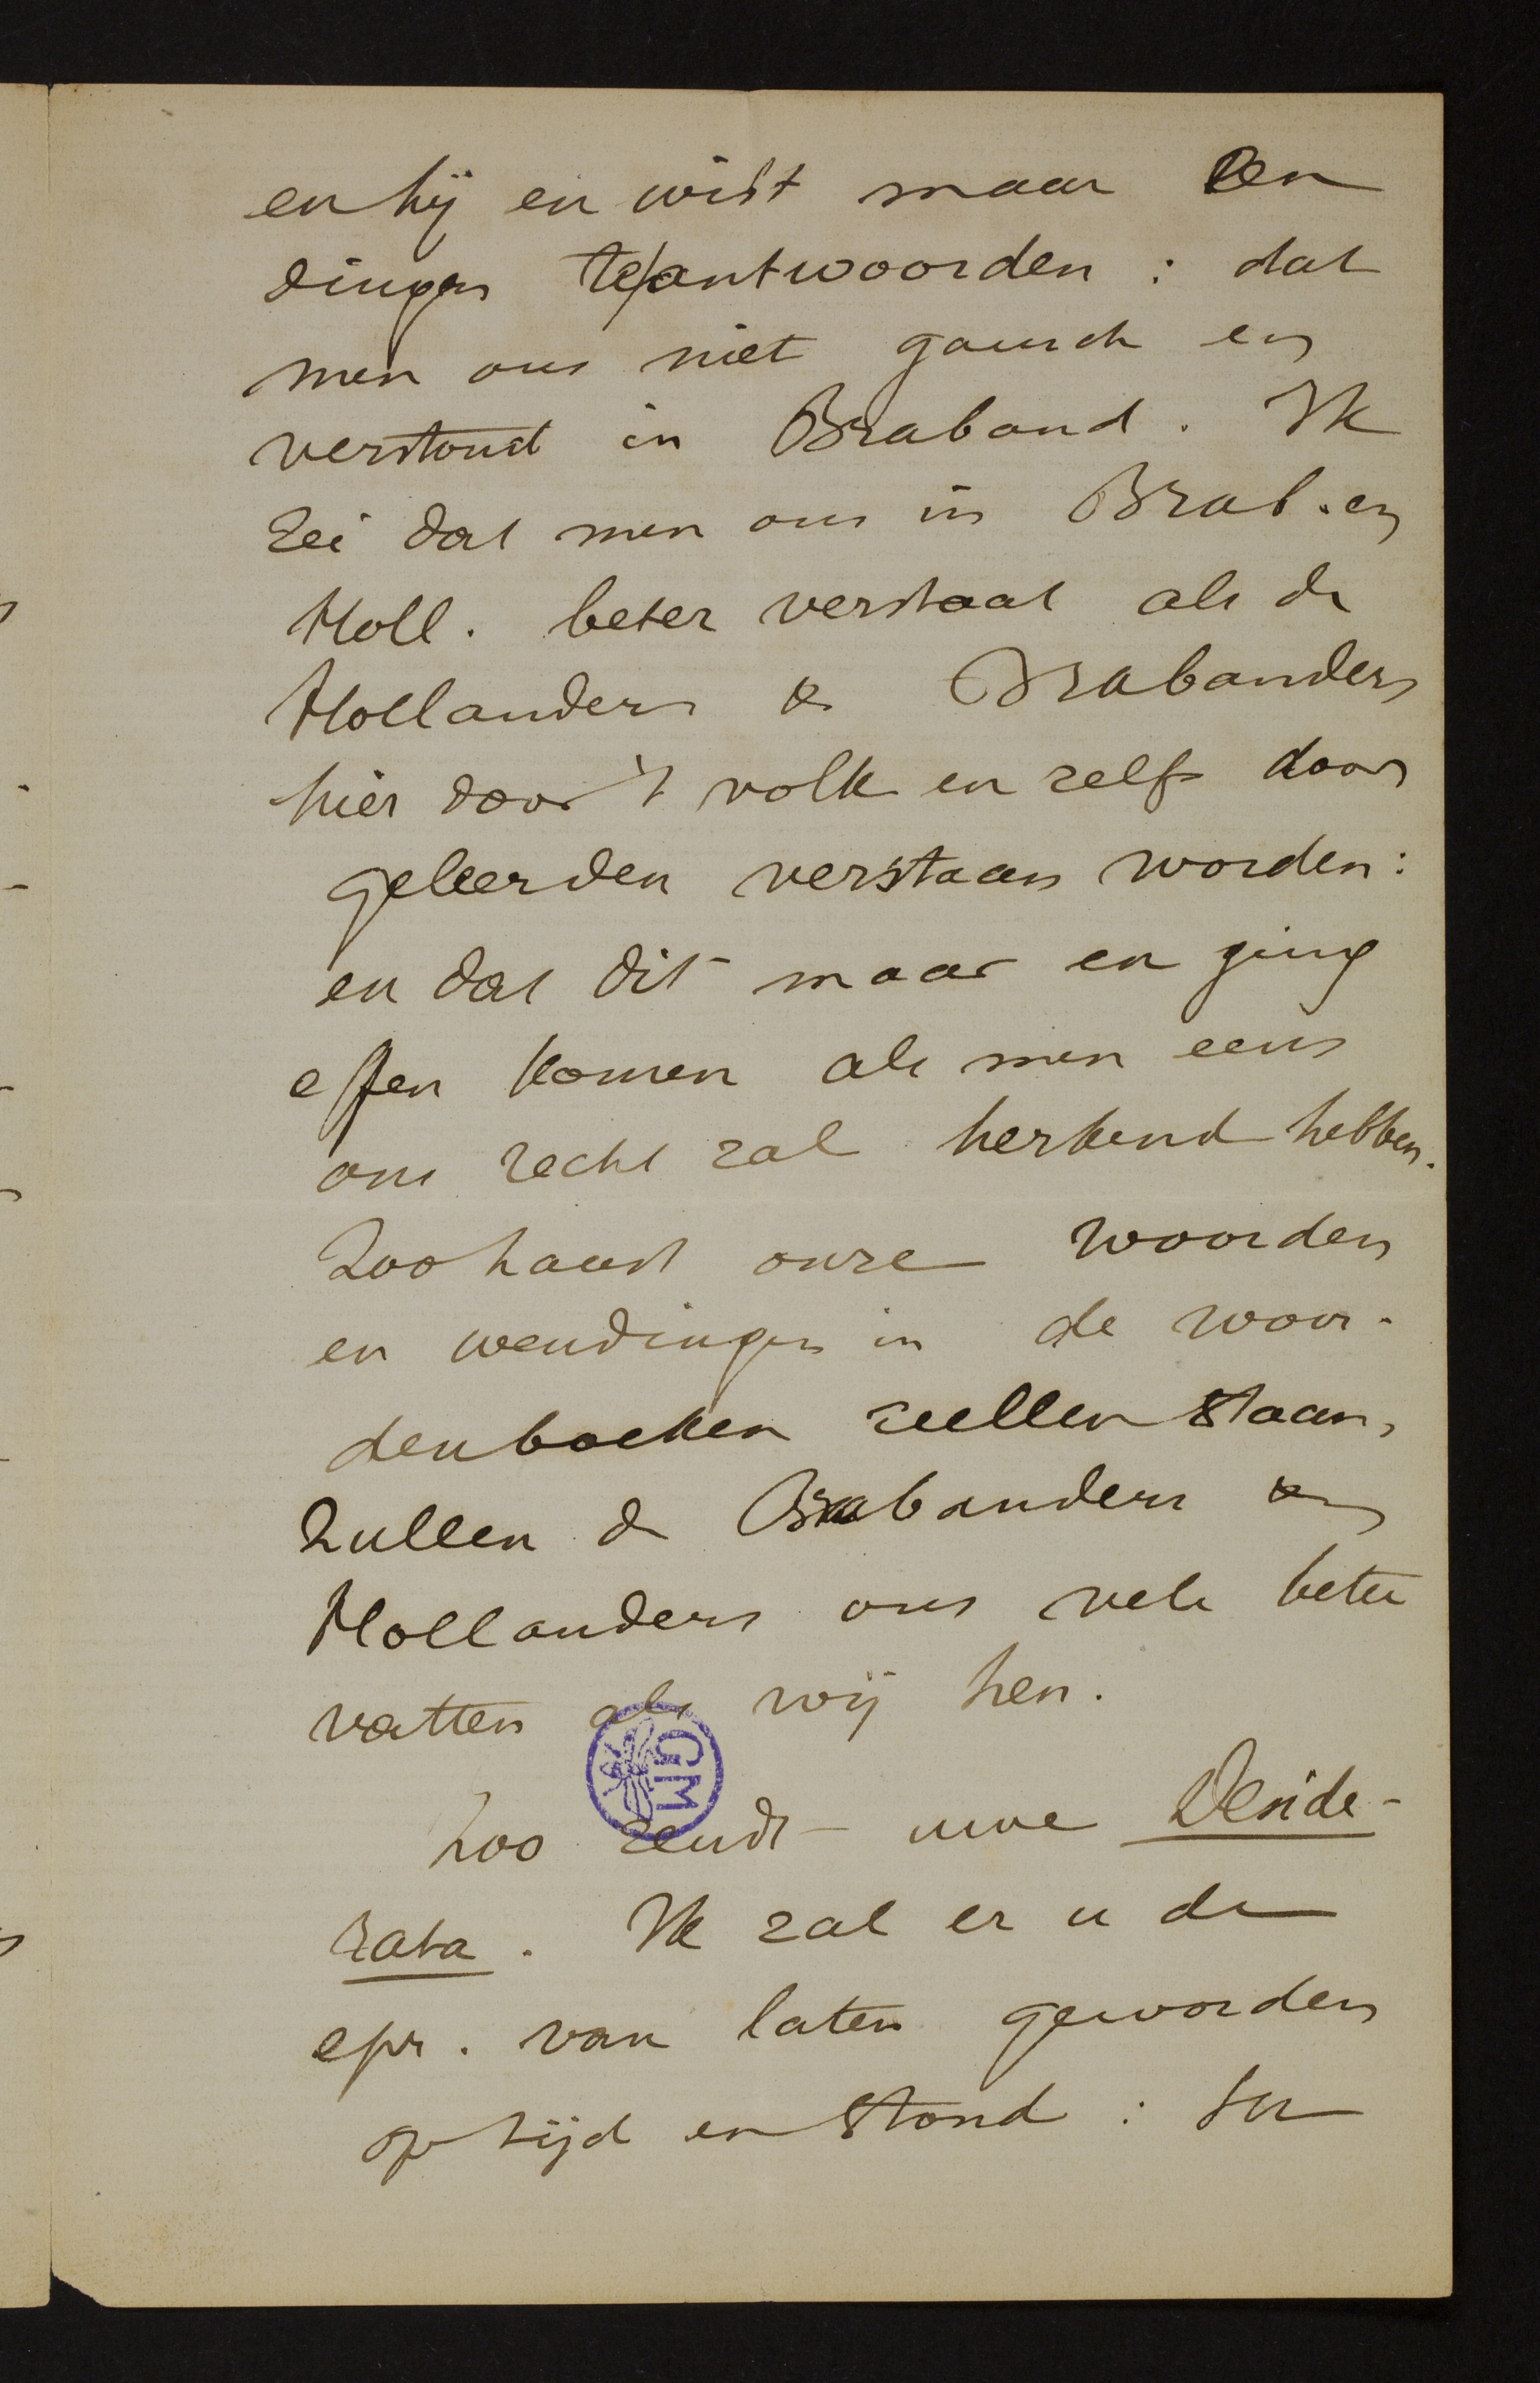 en hij en wist maar een
dingen te/antwoorden : dat
men ons niet gansch en
verstond in Braband. Ik
zei dat men ons in Brab. en
Holl. beter verstaat als de
Hollanders & Brabanders
hier door 't volk en zelfs door
geleerden verstaan worden:
en dat dit maar en ging
effen komen als men eens
ons recht zal herkend hebben.
Zoohaast onze woorden
en wendingen in de woor-
denboeken zullen staan,
zullen de Brabanders &
Hollanders ons vele beter
vatten als wij hen.
GM
Zoo zendt uwe Deside-
rata. Ik zal er u de
epr. van laten geworden
op tijd en stond : ter